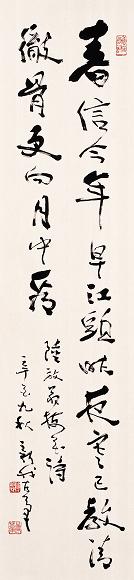 春信今年早江頭昨夜寒已教清
徹骨更向月中看
陸放翁梅花詩
九秋新我左筆